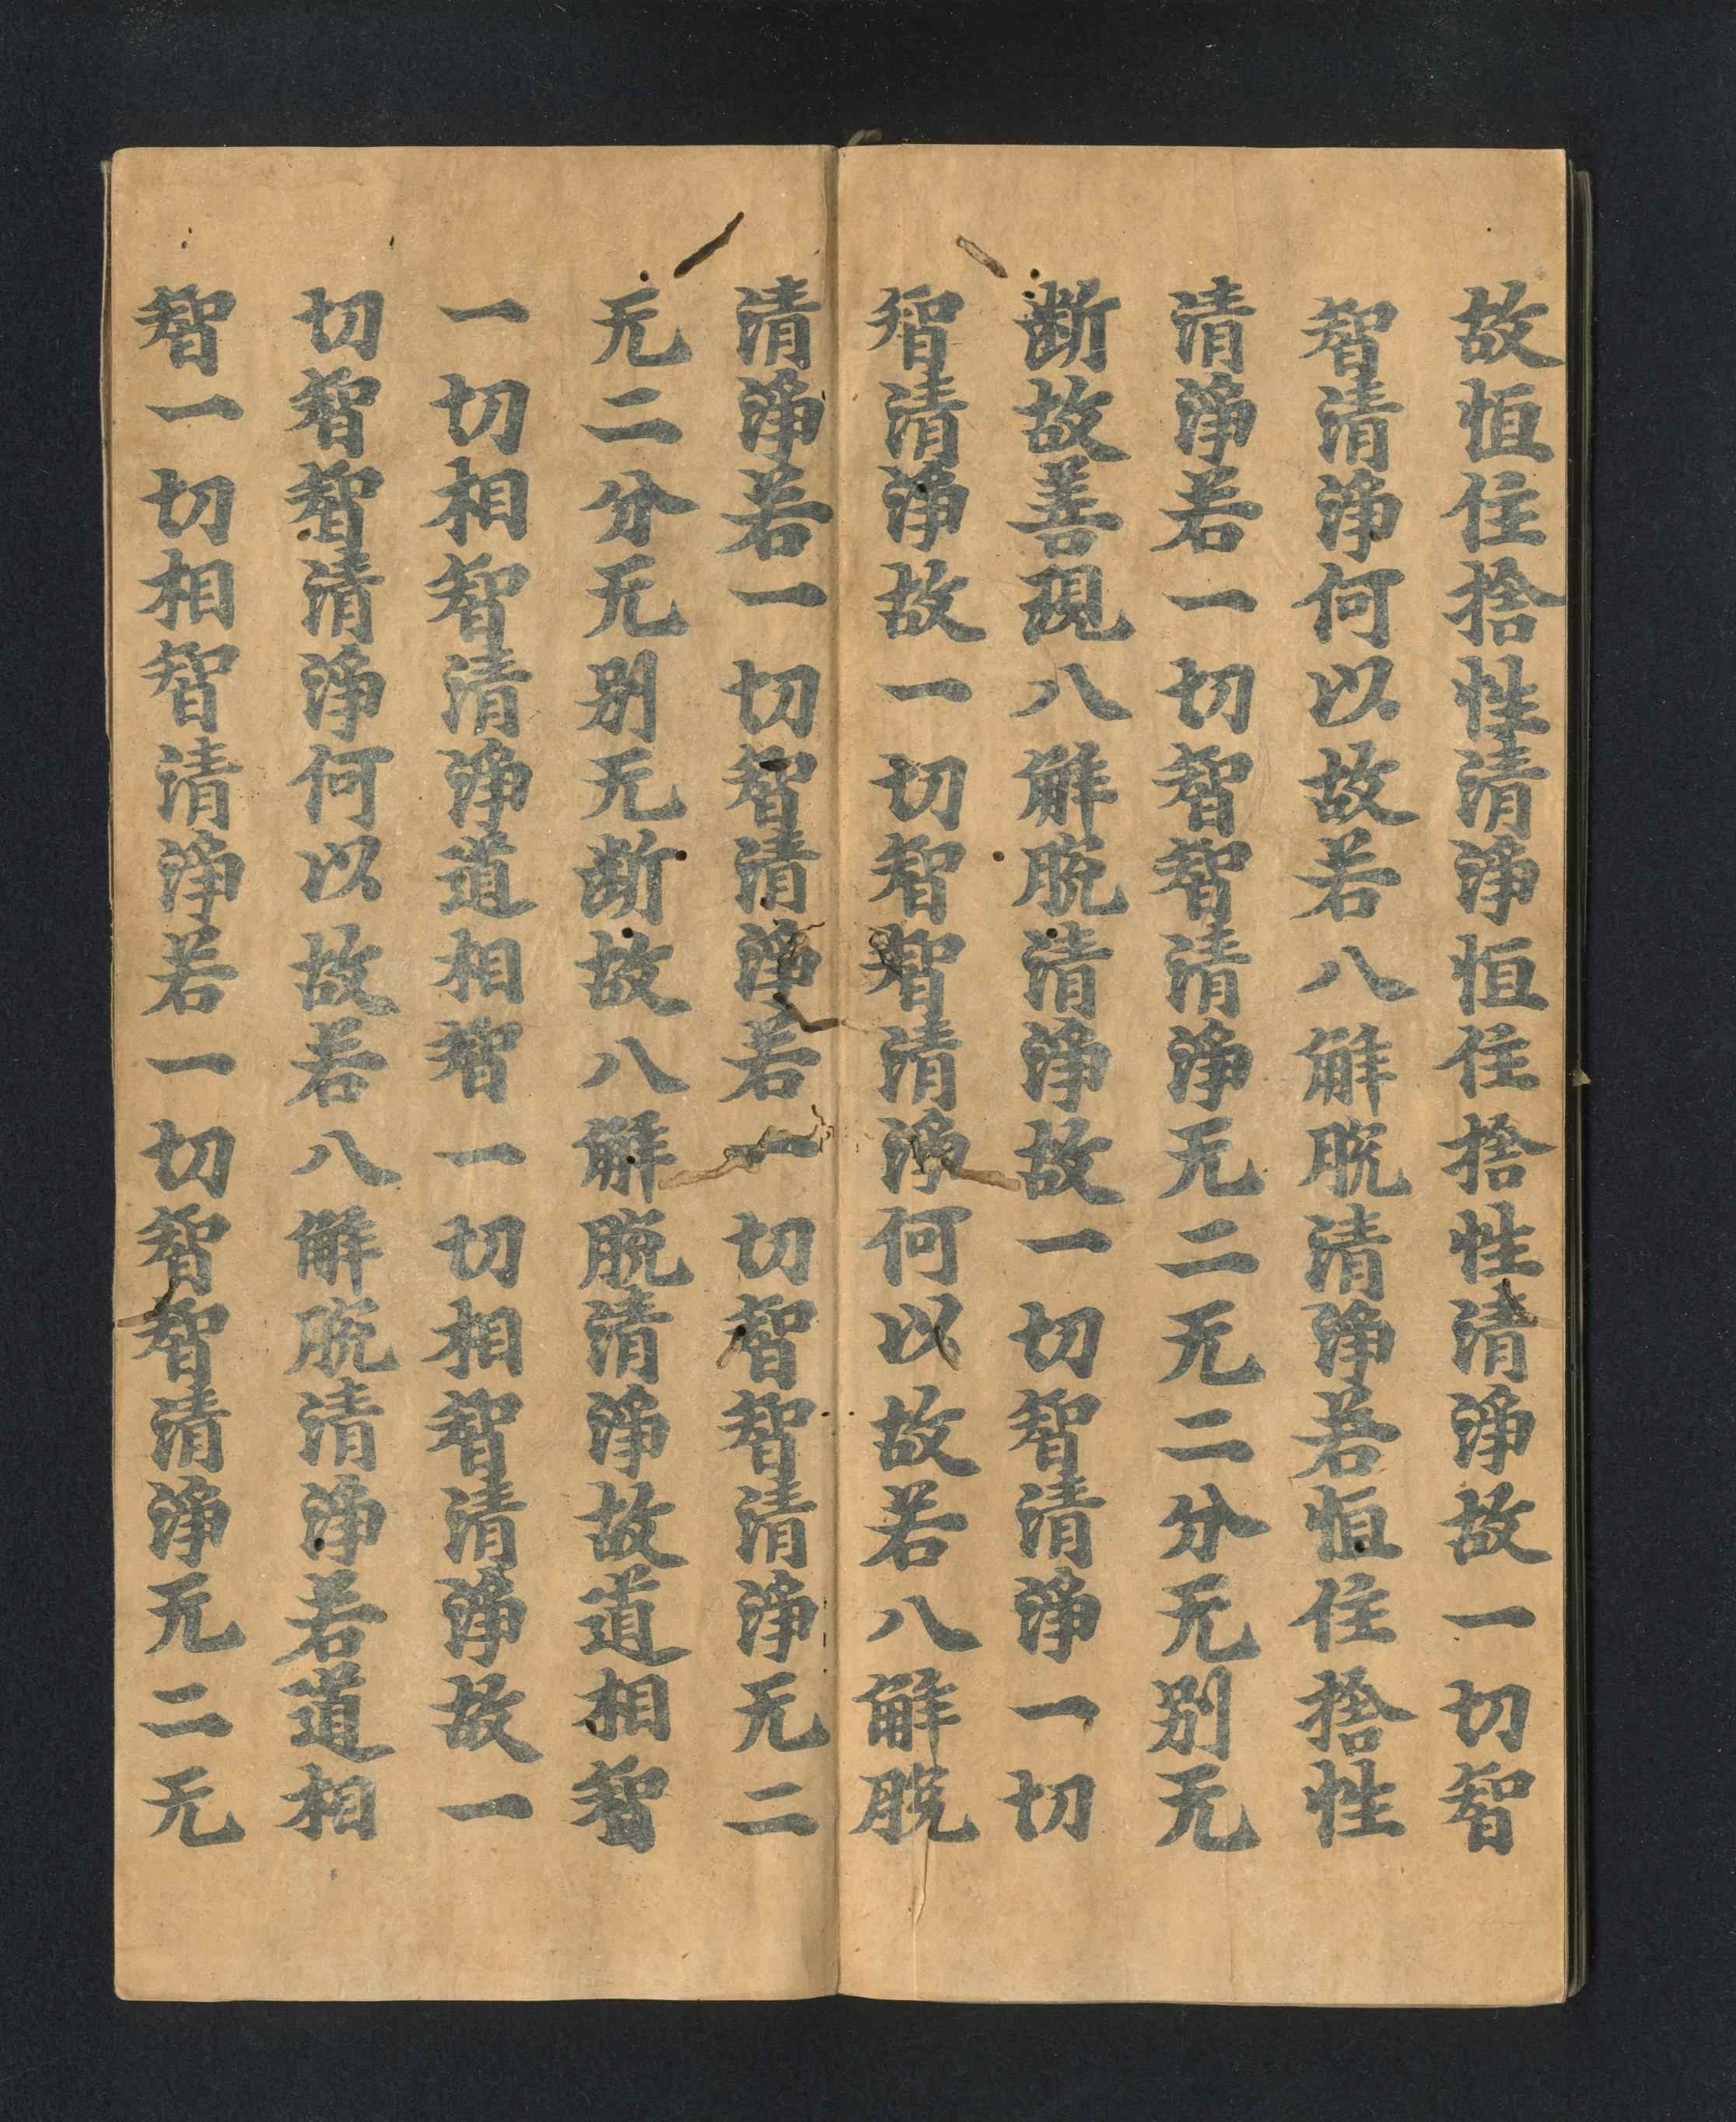 故恒住捨性清淨恒住捨性清淨故一切智
智清淨何以故若八解脱清淨若恒住捨性
清淨若一切智智清淨无二无二分无别无
断故善現八解脱清淨故一切智清淨一切
智清淨故一切智智清淨何以故若八解脱
清淨若一切智清淨若一切智智清淨无二
无二分无别无断故八解脱清淨故道相智
一切相智清淨道相智一切相智清淨故一
切智智清淨何以故若八解脱清淨若道相
智一切相智清淨若一切智智清淨无二无